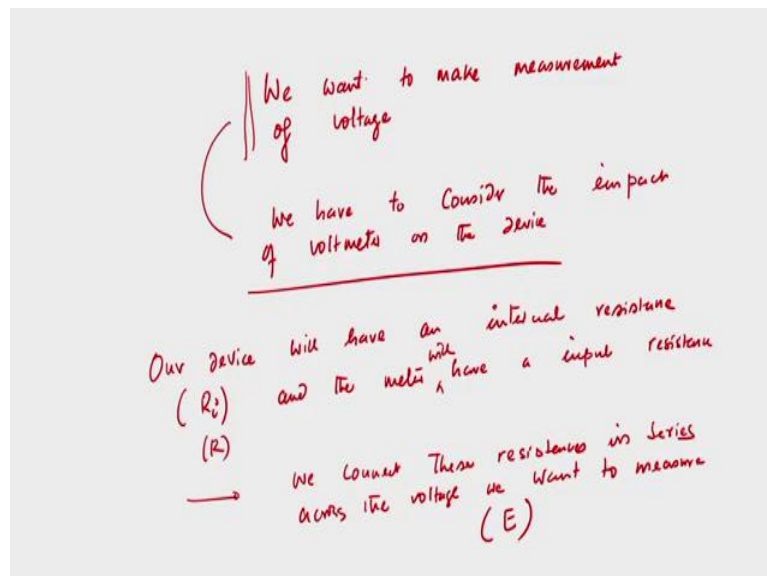 We want to make measurement
of voltage
We have to Consider the impact
of voltmeter on the device
Our device will have an internal resistance
(Ri) and the meter will have a input resistance
(R)
We Connect These resistences in Series
across the voltage we want to measure
(E)